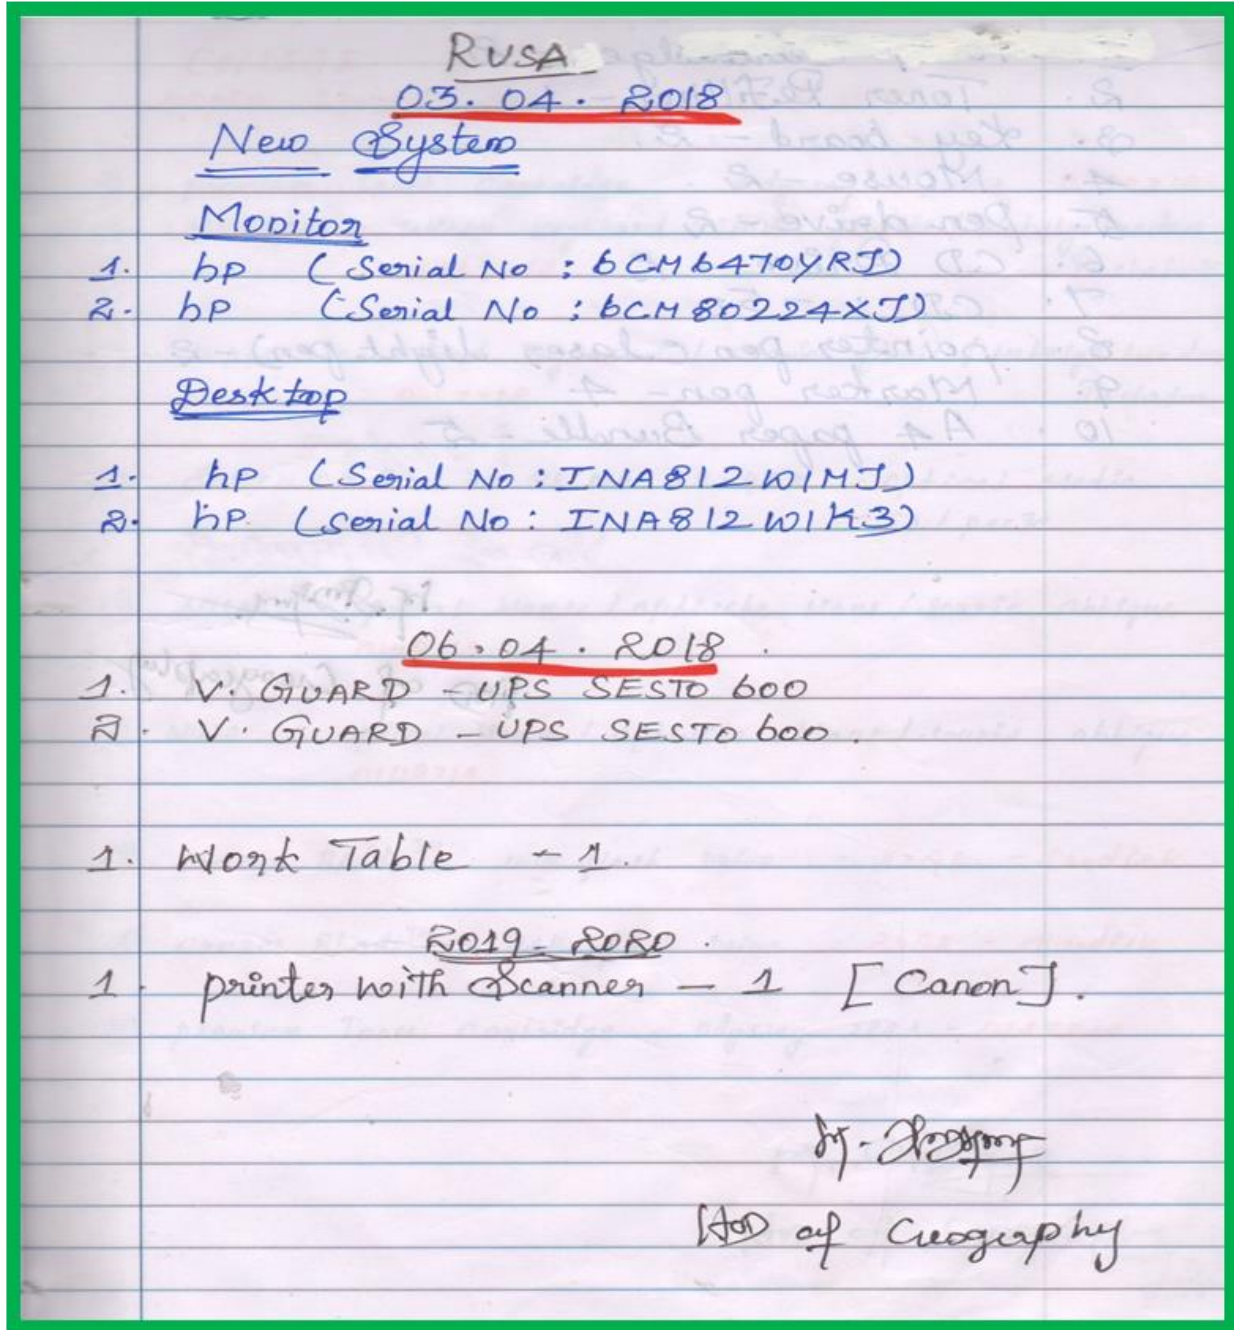 RUSA
03. 04. 2018
New System
Monitor
1. hp (Serial No : 6CM6470YRJ)
2. hp (Serial No : 6CM80224XJ)
Desktop
1. hp (Serial No : INA812W1MJ)
2. hp. (Serial No : INA812W1K3)
06.04.2018.
1. V. GUARD - UPS SESTO 600
2. V. GUARD - UPS SESTO 600.
1. Work Table - 1.
2019-2020.
1. printer with Scanner - 1 [Canon].
HOD of Geography